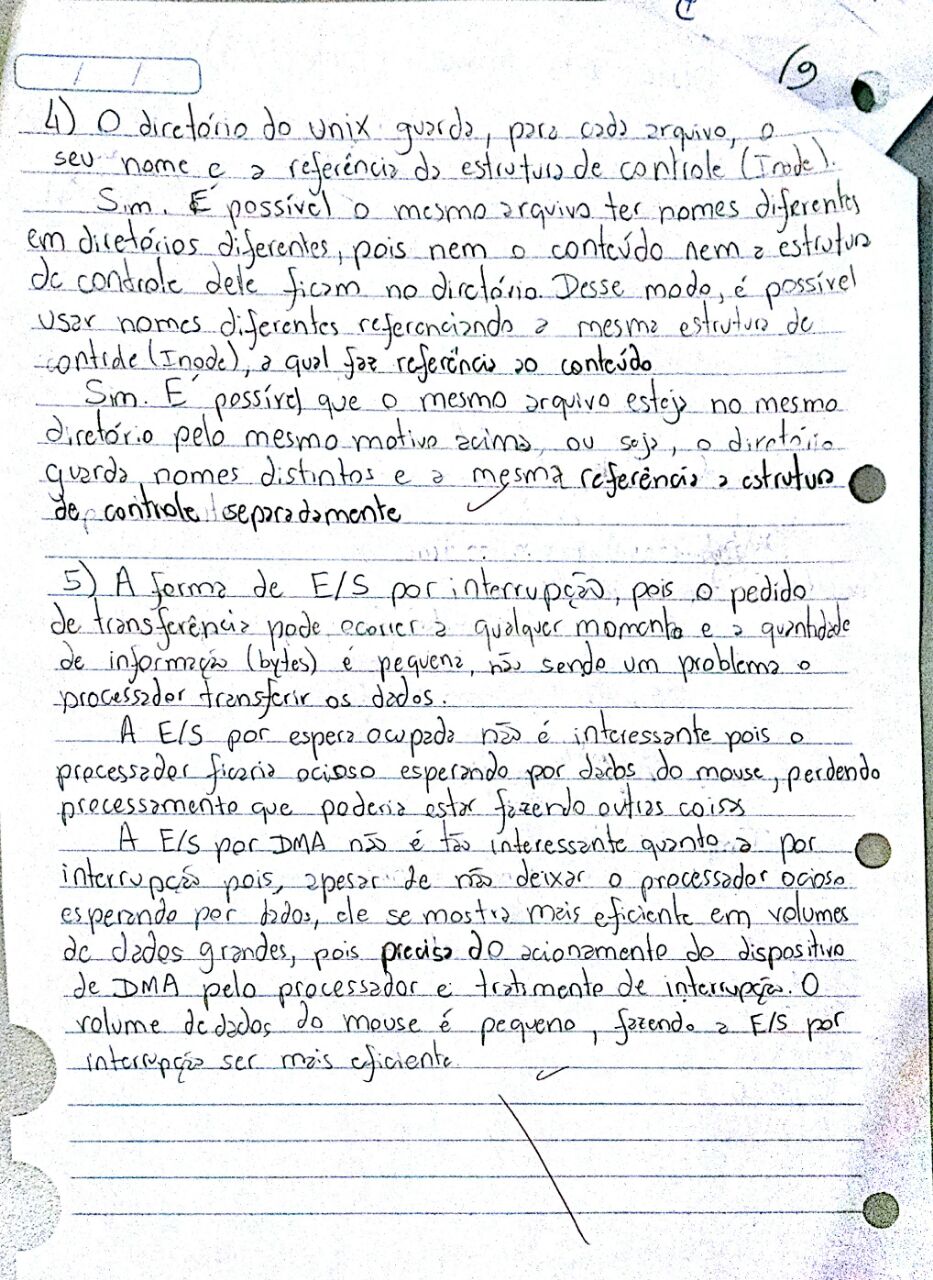 19
4) O diretório do unix guarda, para cada arquivo, o
seu nome e a referência da estrutura de controle (Inode).
Sim. É possível o mesmo arquivo ter nomes diferentes
em diretórios diferentes, pois nem o conteúdo nem a estrutura
de controle dele ficam no diretório. Desse modo, é possível
usar nomes diferentes referenciando a mesma estrutura de
controle (Inode), a qual faz referência ao conteúdo
Sim. É possível que o mesmo arquivo esteja no mesmo
diretório pelo mesmo motivo acima, ou seja, o diretório
guarda nomes distintos e a mesma referência a estrutura
de controle separadamente
5) A forma de E/S por interrupção, pois o pedido
de transferência pode ocorrer a qualquer momento e a quantidade
de informação (bytes) é pequena, não sendo um problema o
processador transferir os dados.
A E/S por espera ocupada não é interessante pois o
processador ficaria ocioso esperando por dados do mouse, perdendo
processamento que poderia estar fazendo outras coisas
A E/S por DMA não é tão interessante quanto a por
interrupção pois, apesar de não deixar o processador ocioso
esperando por dados, ele se mostra mais eficiente em volumes
de dados grandes, pois precisa do acionamento do dispositivo
de DMA pelo processador e tratamento de interrupção. O
volume de dados do mouse é pequeno, fazendo a E/S por
interrupção ser mais eficiente.